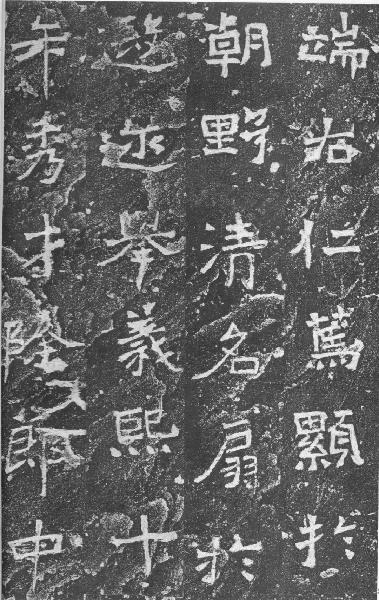 端右仁篤顯扵
朝野清名扇扵
遐迩举義熙十
年秀才除郎中